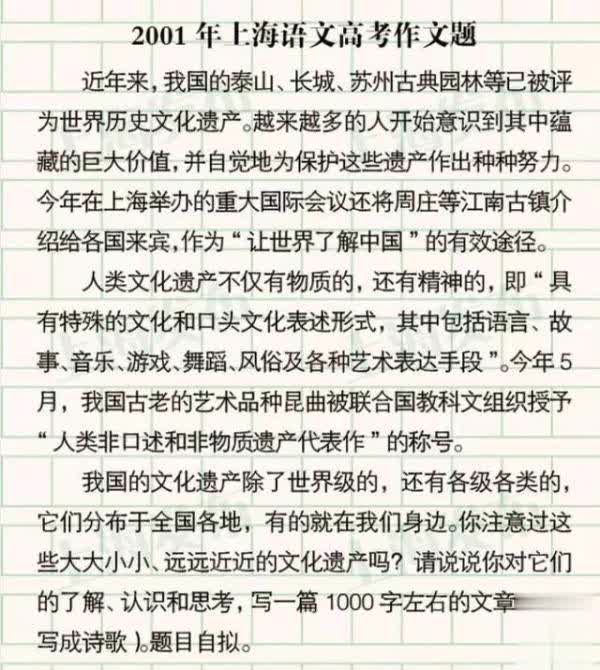 2001 年上海语文高考作文题
近年来，我国的泰山、长城、苏州古典园林等已被评
为世界历史文化遗产。越来越多的人开始意识到其中蕴
藏的巨大价值，并自觉地为保护这些遗产作出种种努力。
今年在上海举办的重大国际会议还将周庄等江南古镇介
绍给各国来宾，作为“让世界了解中国”的有效途径。
人类文化遗产不仅有物质的，还有精神的，即“具
有特殊的文化和口头文化表述形式，其中包括语言、故
事、音乐、游戏、舞蹈、风俗及各种艺术表达手段”。今年 5
月，我国古老的艺术品种昆曲被联合国教科文组织授予
“人类非口述和非物质遗产代表作”的称号。
我国的文化遗产除了世界级的，还有各级各类的，
它们分布于全国各地，有的就在我们身边。你注意过这
些大大小小、远远近近的文化遗产吗？请说说你对它们
的了解、认识和思考，写一篇 1000 字左右的文章
写成诗歌）。题目自拟。